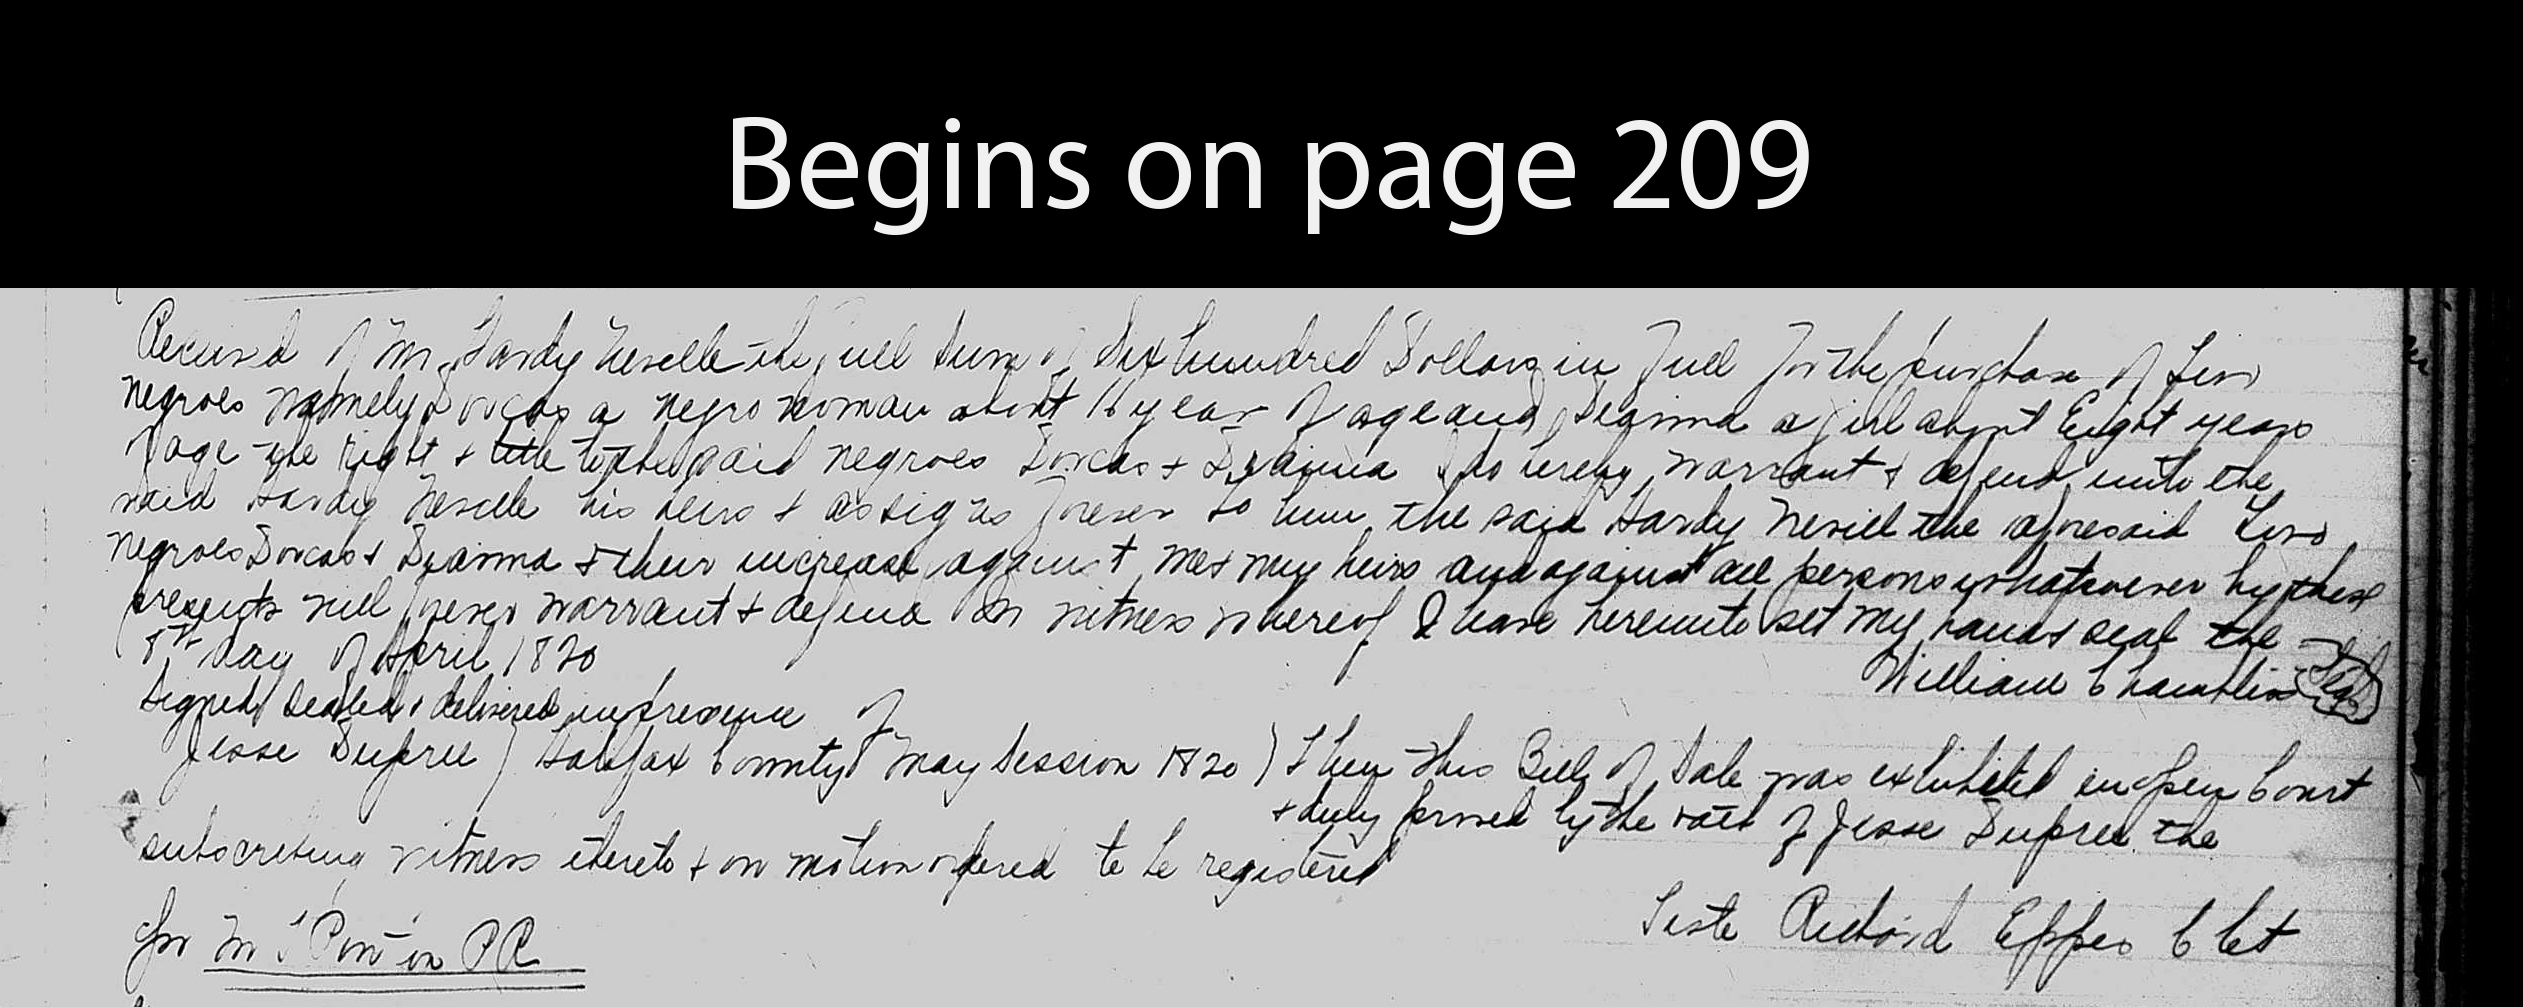 Begins on page 209
Received of Mr. Hardy Nevelle the full Sum of Six hundred Dollars in full for the purchase of Two
negroes namely Dorcas a negro woman about 16 year of age and Dianna a girl about Eight years
of age the right & title to the said negroes Dorcas & Dianna I do hereby warrant & defend unto the
said Hardy Nevelle his heirs & assigns forever to him the said Hardy Nevill the aforesaid Two
negroes Dorcas & Dianna & their increase against me & my heirs and against all persons whatsoever by these
presents will forever warrant & defend In witness whereof I have hereunto set my hand & seal the
8th day of April 1820
William Chamblin Seal
Signed Sealed & delivered in presence of
Jesse Dupree ) Halifax County May Session 1820 ) Then this Bill of Sale was exhibited in open Court
& duly proved by the oath of Jesse Dupree the
subscribing witness thereto & on motion ordered to be registered
Teste Richard Eppes C Ct
for PR